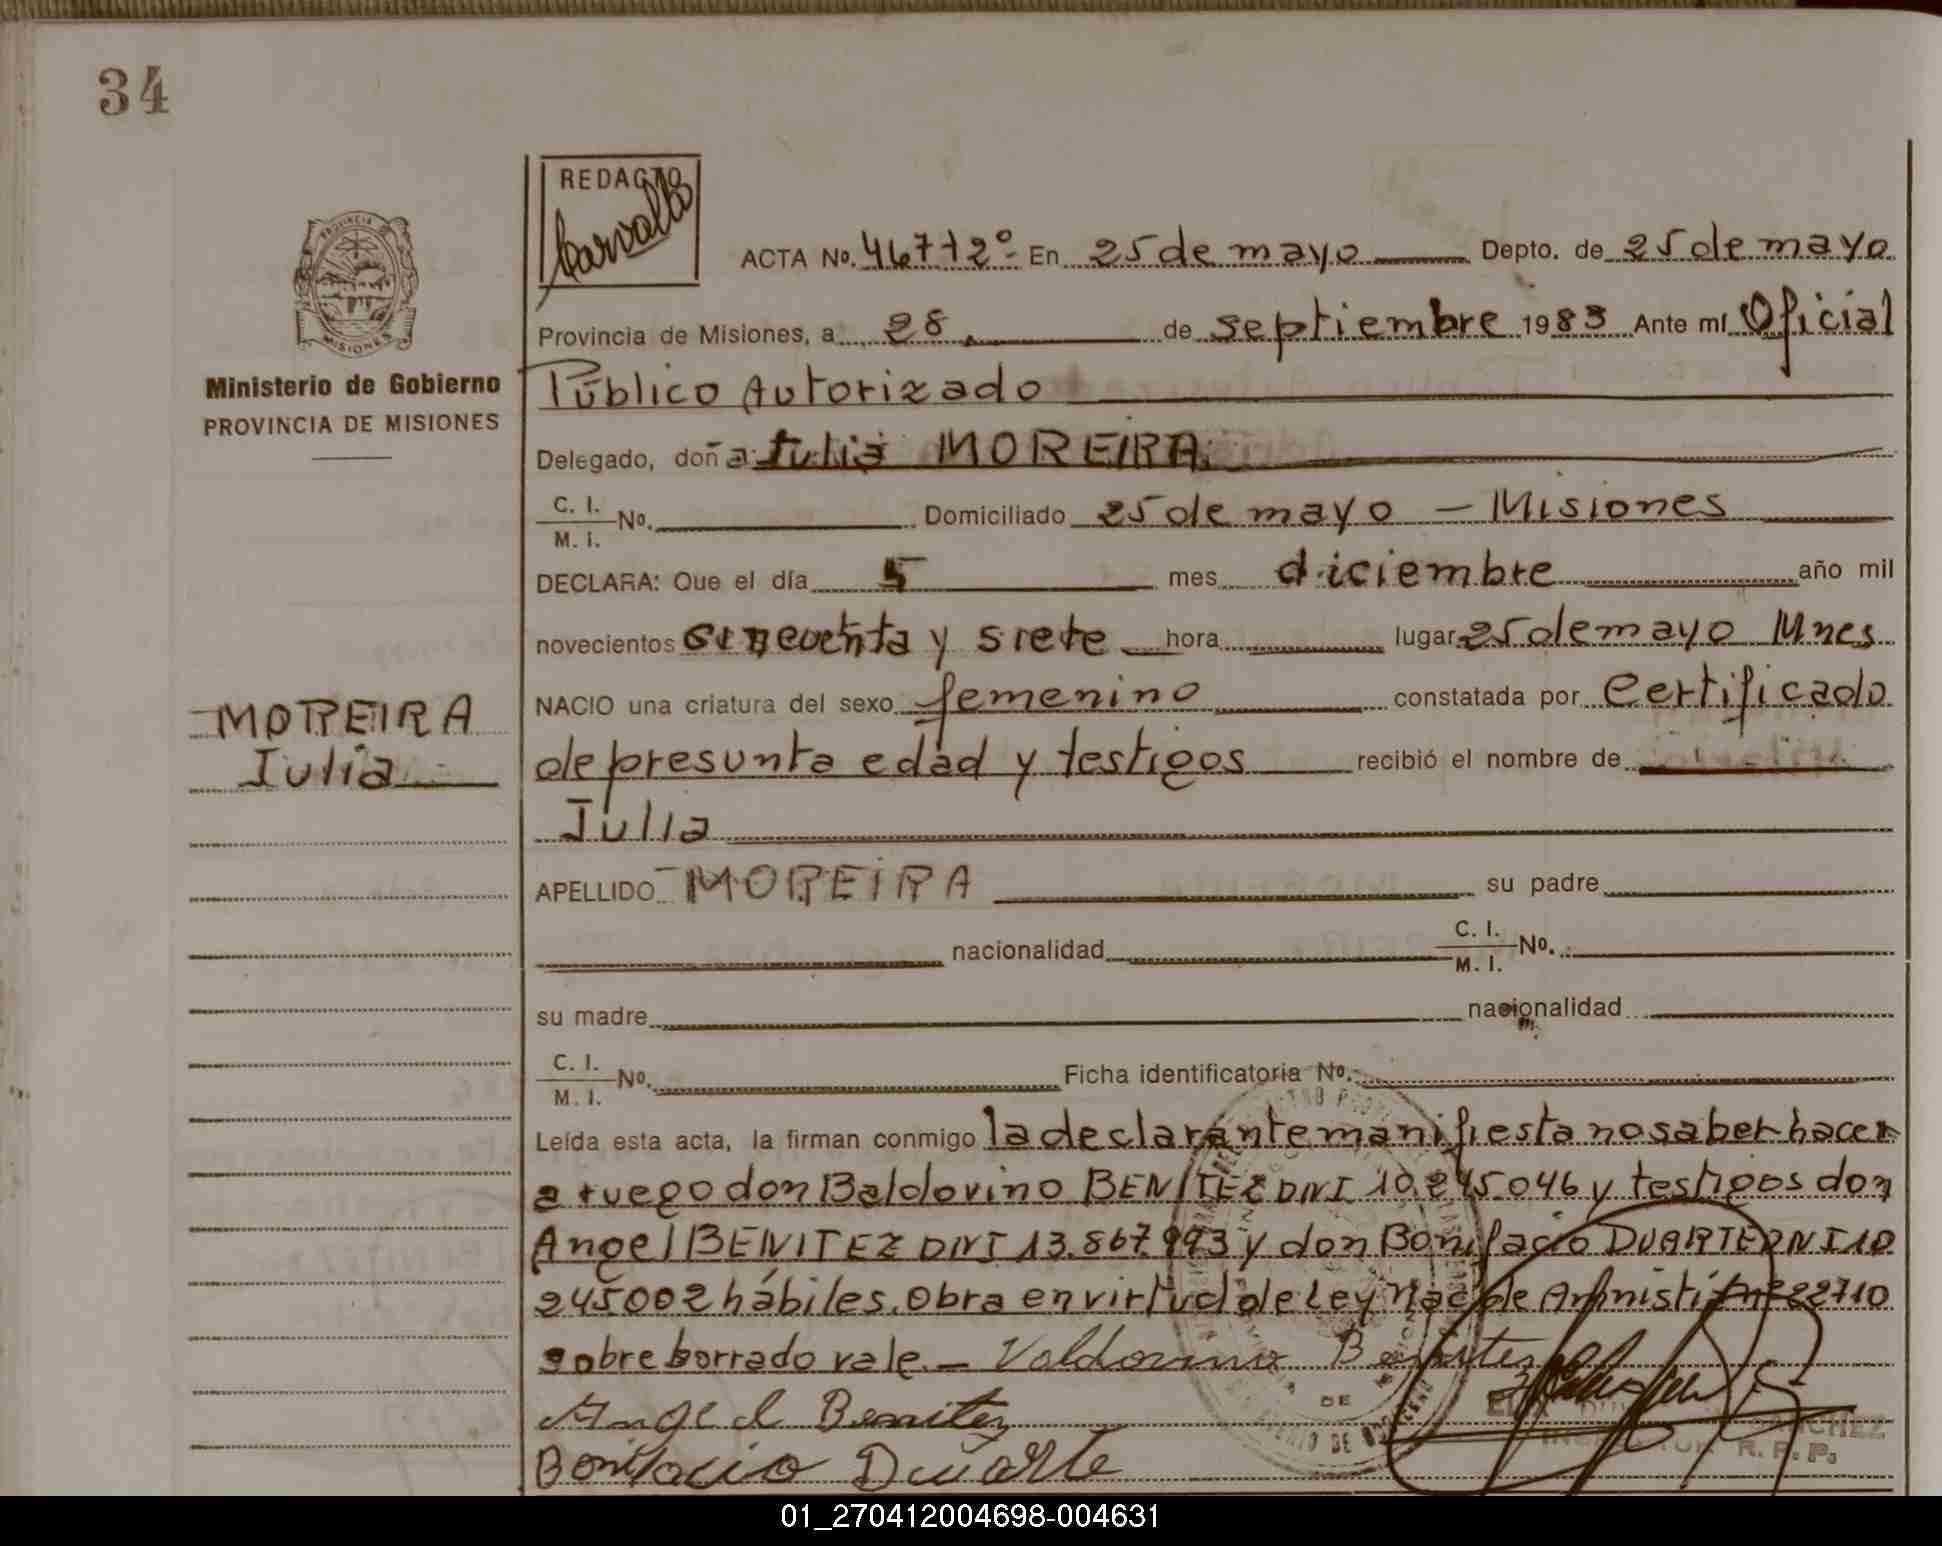 34
REDACTO
Carvallo
PROVINCIA DE
MISIONES
Ministerio de Gobierno
PROVINCIA DE MISIONES
ACTA No. 46712º- En 25 de mayo Depto. de 25 de mayo
Provincia de Misiones, a 28 de septiembre 1983 Ante mí Oficial
Público Autorizado
Delegado, doña Julia MOREIRA
C. I. / M. I. No. Domiciliado 25 de mayo - Misiones
DECLARA: Que el día 5 mes diciembre año mil
novecientos cincuenta y siete hora lugar 25 de mayo Mnes
NACIO una criatura del sexo femenino constatada por certificado
de presunta edad y testigos recibió el nombre de
Julia
APELLIDO MOREIRA su padre
nacionalidad C. I. / M. I. No.
su madre nacionalidad
C. I. / M. I. No. Ficha identificatoria No.
Leída esta acta, la firman conmigo la declarante manifiesta no saber hacer
a ruego don Baldovino BENITEZ DNI 10.245.046 y testigos don
Angel BENITEZ DNI 13.867.993 y don Bonifacio DUARTE DNI 10
245002 hábiles. Obra en virtud de Ley Nac de Amnistía nº 22710
sobre borrado vale.- Valdovino Benitez
Angel Benitez
Bonifacio Duarte
SANCHEZ
INSPECTOR R. P. P.
MOREIRA
Julia
01_270412004698-004631